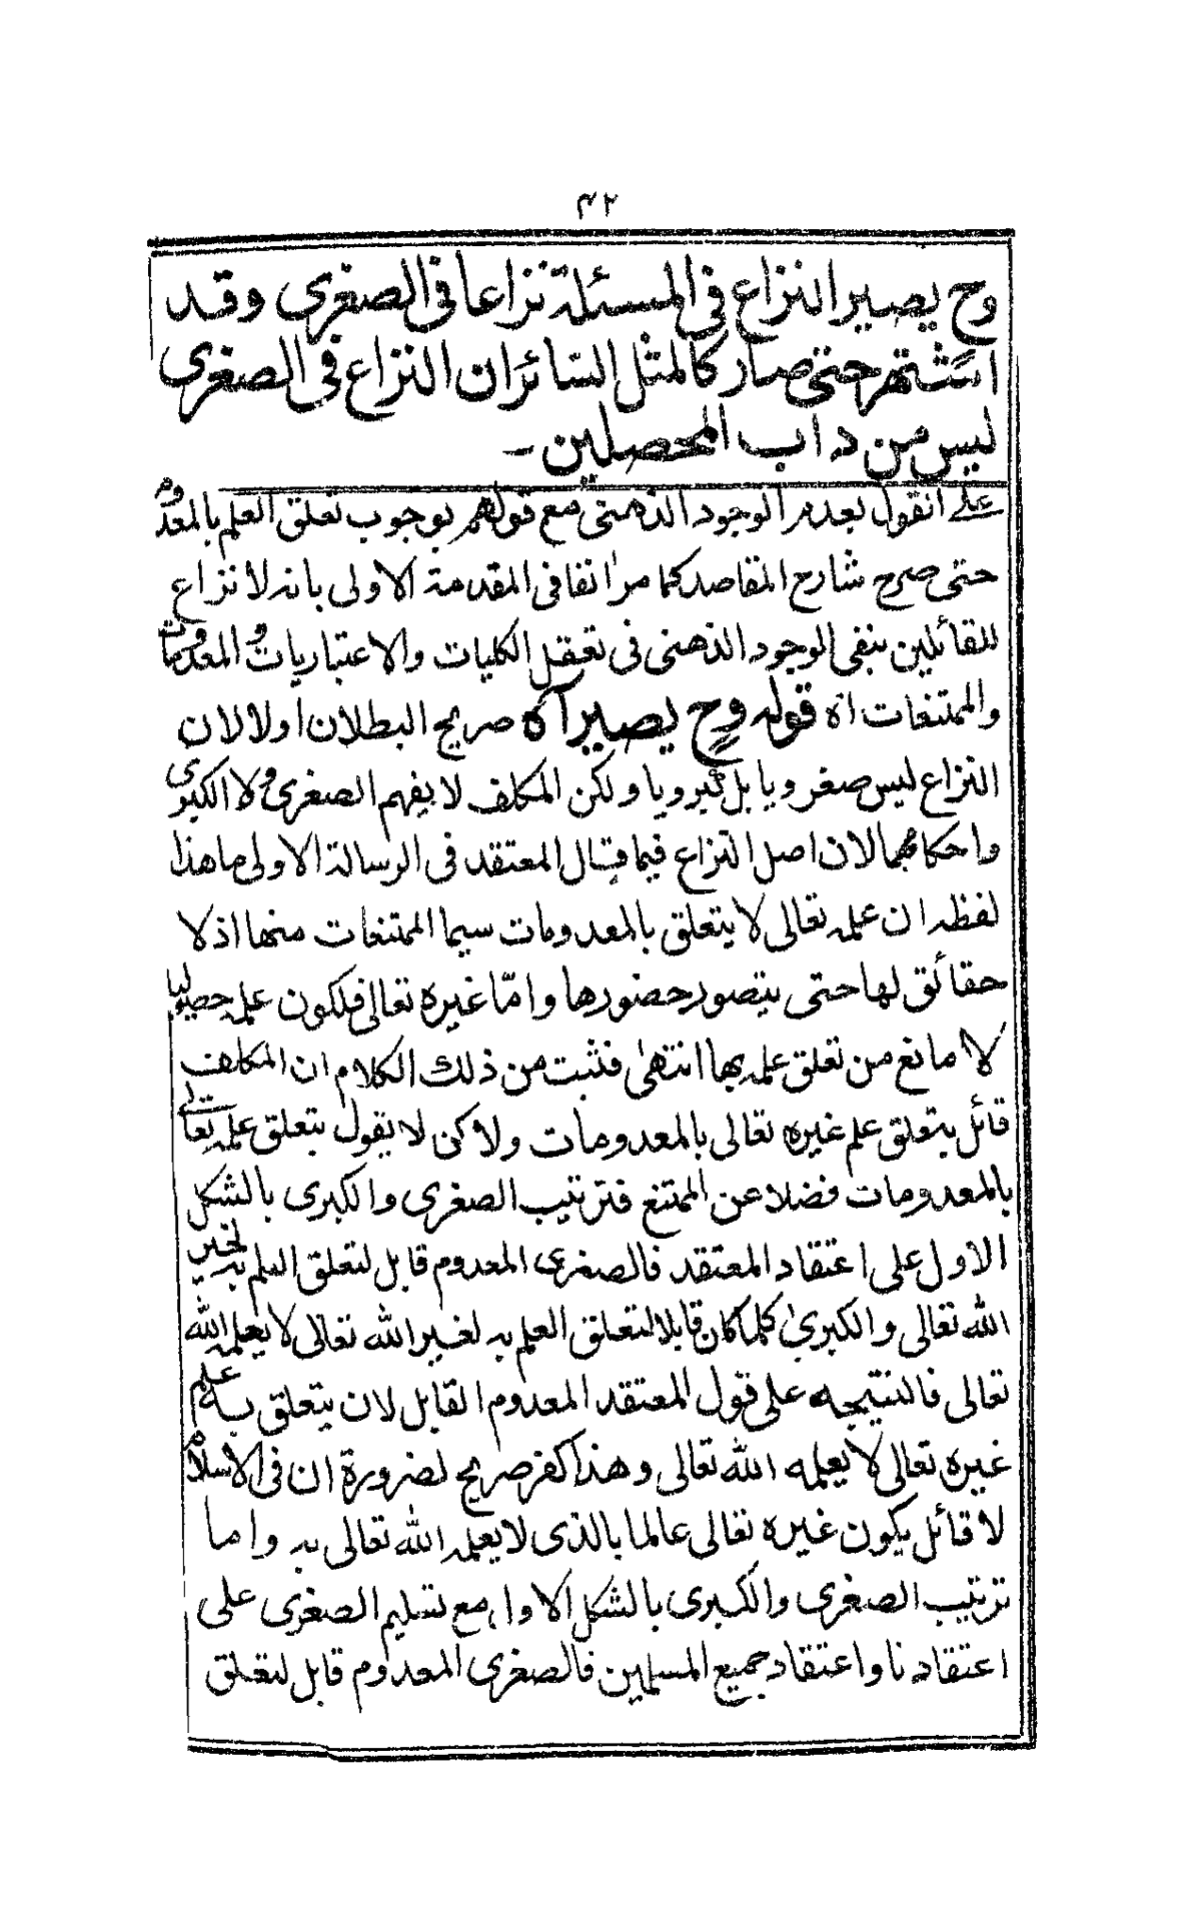 ٤٢
وح يصير النزاع في المسئلة نزاعا في الصغرى وقد
اشتهر حتى صار كالمثل السائر ان النزاع في الصغرى
ليس من داب المحصلين ـ
على انقول بعدم الوجود الذهنى مع قولهم بوجوب تعلق العلم بالمعدوم
حتى صرح شارح المقاصد كما مر انفا فى المقدمة الاولى بانه لا نزاع
للقائلين بنفى الوجود الذهنى فى تعقل الكليات والاعتباريات والمعدومات
والممتنعات اه قوله وح يصير آه صريح البطلان اولا لان
النزاع ليس صغرويا بل كبرويا ولكن المكلف لا يفهم الصغرى ولا الكبرى
واحكامهما لان اصل النزاع فيما قال المعتقد فى الرسالة الاولى ما هذا
لفظه ان علمه تعالى لا يتعلق بالمعدومات سيما الممتنعات منها اذ لا
حقائق لها حتى يتصور حضورها وامّا غيره تعالى فلكون علمه حصوليا
لا مانع من تعلق علمه بها انتهى فثبت من ذلك الكلام ان المكلف
قائل بتعلق علم غيره تعالى بالمعدومات ولاكن لا يقول بتعلق علمه تعالى
بالمعدومات فضلا عن الممتنع فترتيب الصغرى والكبرى بالشكل
الاول على اعتقاد المعتقد فالصغرى المعدوم قابل لتعلق العلم به لغير
الله تعالى والكبرىٰ كلما كان قابلا لتعلق العلم به لغير الله تعالى لا يعلمه الله
تعالى فالنتيجه على قول المعتقد المعدوم القابل لان يتعلق به علم
غيره تعالى لا يعلمه الله تعالى وهذا كفر صريح لضرورة ان فى الاسلام
لا قائل يكون غيره تعالى عالما بالذى لا يعلمه الله تعالى به واما
ترتيب الصغرى والكبرى بالشكل الاول مع تسليم الصغرى على
اعتقادنا واعتقاد جميع المسلمين فالصغرى المعدوم قابل لتعلق